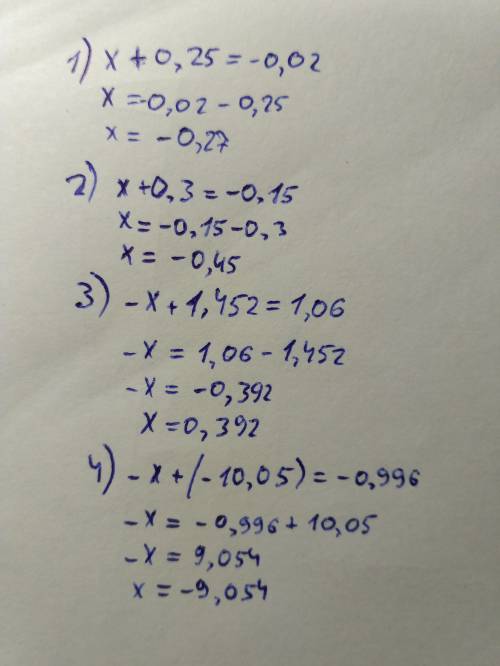 1) x + 0,25 = -0,02
x = -0,02 - 0,25
x = -0,27
2) x + 0,3 = -0,15
x = -0,15 - 0,3
x = -0,45
3) -x + 1,452 = 1,06
-x = 1,06 - 1,452
-x = -0,392
x = 0,392
4) -x + (-10,05) = -0,996
-x = -0,996 + 10,05
-x = 9,054
x = -9,054